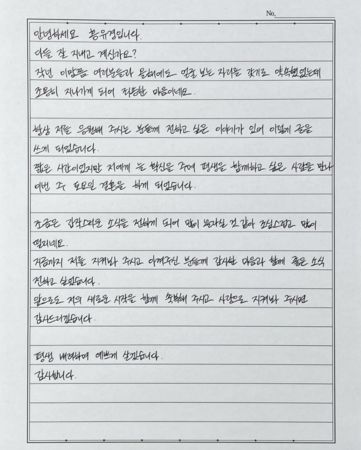 No.
안녕하세요 홍유경입니다.
다들 잘 지내고 계신가요?
작년 이맘쯤 여러분들과 올해에도 얼굴 보는 자리를 갖기로 약속했었는데
조용히 지나가게 되어 죄송한 마음이네요.
항상 저를 응원해 주시는 분들께 전하고 싶은 이야기가 있어 이렇게 글을
쓰게 되었습니다.
짧은 시간이었지만 저에게 큰 확신을 주며 평생을 함께하고 싶은 사람을 만나
이번 주 토요일 결혼을 하게 되었습니다.
조금은 갑작스러운 소식을 전하게 되어 많이 놀라실 것 같아 조심스럽고 많이
떨리네요.
지금까지 저를 지켜봐 주시고 아껴주신 분들께 감사한 마음과 함께 좋은 소식
전하고 싶었습니다.
앞으로도 저의 새로운 시작을 함께 축복해 주시고 사랑으로 지켜봐 주시면
감사드리겠습니다.
평생 배려하며 예쁘게 살겠습니다.
감사합니다.